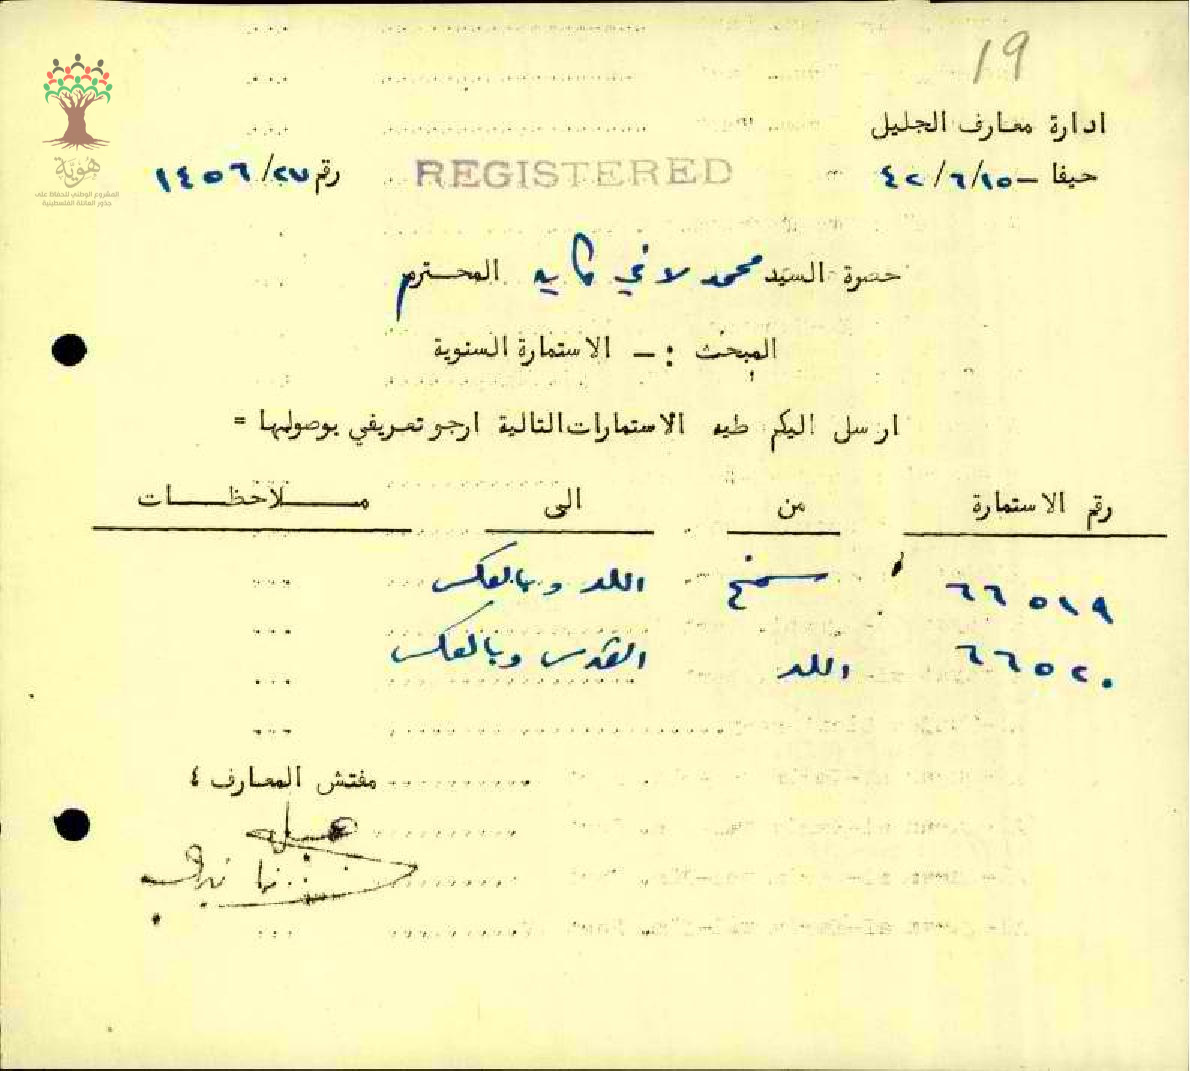 19
ادارة معارف الجليل
حيفا – ١٥/٦/٤٢
REGISTERED
رقم ٢٧/١٤٥٦
هوية
المشروع الوطني للحفاظ على
جذور العائلة الفلسطينية
حضرة السيد محمد المحترم
المبحث :– الاستمارة السنوية
ارسل اليكم طيه الاستمارات التالية ارجو تعريفي بوصولها =
رقم الاستمارة من الى ملاحظات
٦٦٥١٩ سمخ اللد وبالعكس
٦٦٥٢٠ اللد القدس وبالعكس
مفتش المعارف ٤